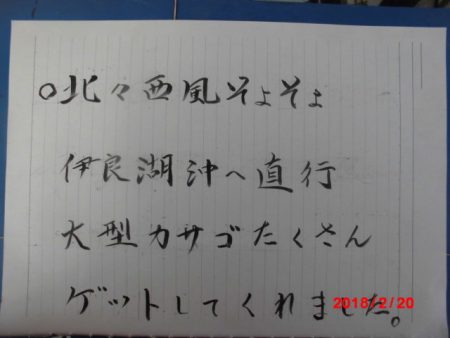 ○北々西風そよそよ
伊良湖沖へ直行
大型カサゴたくさん
ゲットしてくれました。
2018/12/20